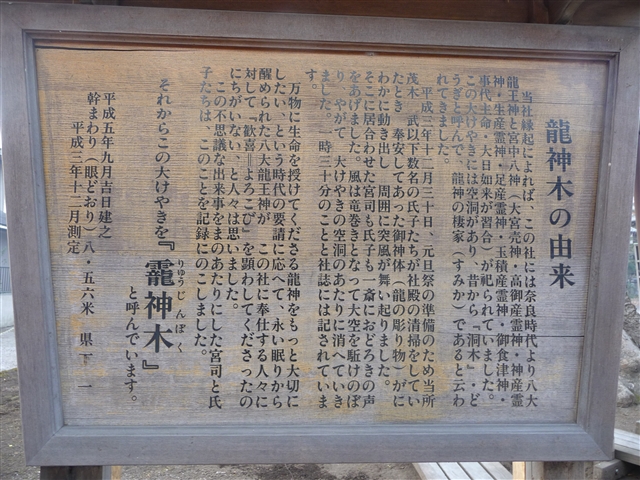 龍神木の由来
当社縁起によれば、この社には奈良時代より八大
龍王神と宮中八神（大宮売神・高御産霊神・神産霊
神・生産霊神・足産霊神・玉積産霊神・御食津神・
事代主命・大日如来が習合）が祀られていました。
この大けやきには空洞があり、昔から『洞木』・ど
うぎと呼んで、龍神の棲家（すみか）であると云わ
れてきました。
平成三年十二月三十日、元旦祭の準備のため当所
茂木 武以下数名の氏子たちが社殿の清掃をしてい
たとき、奉安してあった御神体（龍の彫り物）がに
わかに動き出し、周囲に突風が舞い起りました。
そこに居合わせた宮司も氏子も一斎におどろきの声
をあげました。風は竜巻きとなって大空を駆けのぼ
り、やがて、大けやきの空洞のあたりに消へていき
ました。一時三十分のことと社誌には記されていま
す。
万物に生命を授けてくださる龍神をもっと大切に
したい、という時代の要請に応へて、永い眠りから
醒められた八大龍王神が、この社に奉仕する人々に
対して『歓喜＝よろこび』を顕わしてくださったの
にちがいない、と人々は思いました。
この不思議な出来事をまのあたりにした宮司と氏
子たちは、このことを記録にのこしました。
それからこの大けやきを『龗神木』
りゅうじんぼく
と呼んでいます。
平成五年九月吉日建之
幹まわり（眼どおり）八・五六米 県下一
平成三年十二月測定